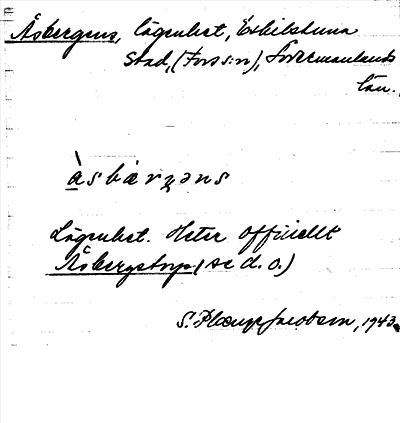 Åsbergens, lägenhet, Eskilstuna
Stad, (Fors s:n), Södermanlands
län.
àsbærgəns
Lägenhet. Heter officiellt
Åsbergstorp (se d. o.)
S. Plœnge Jacobson, 1943.